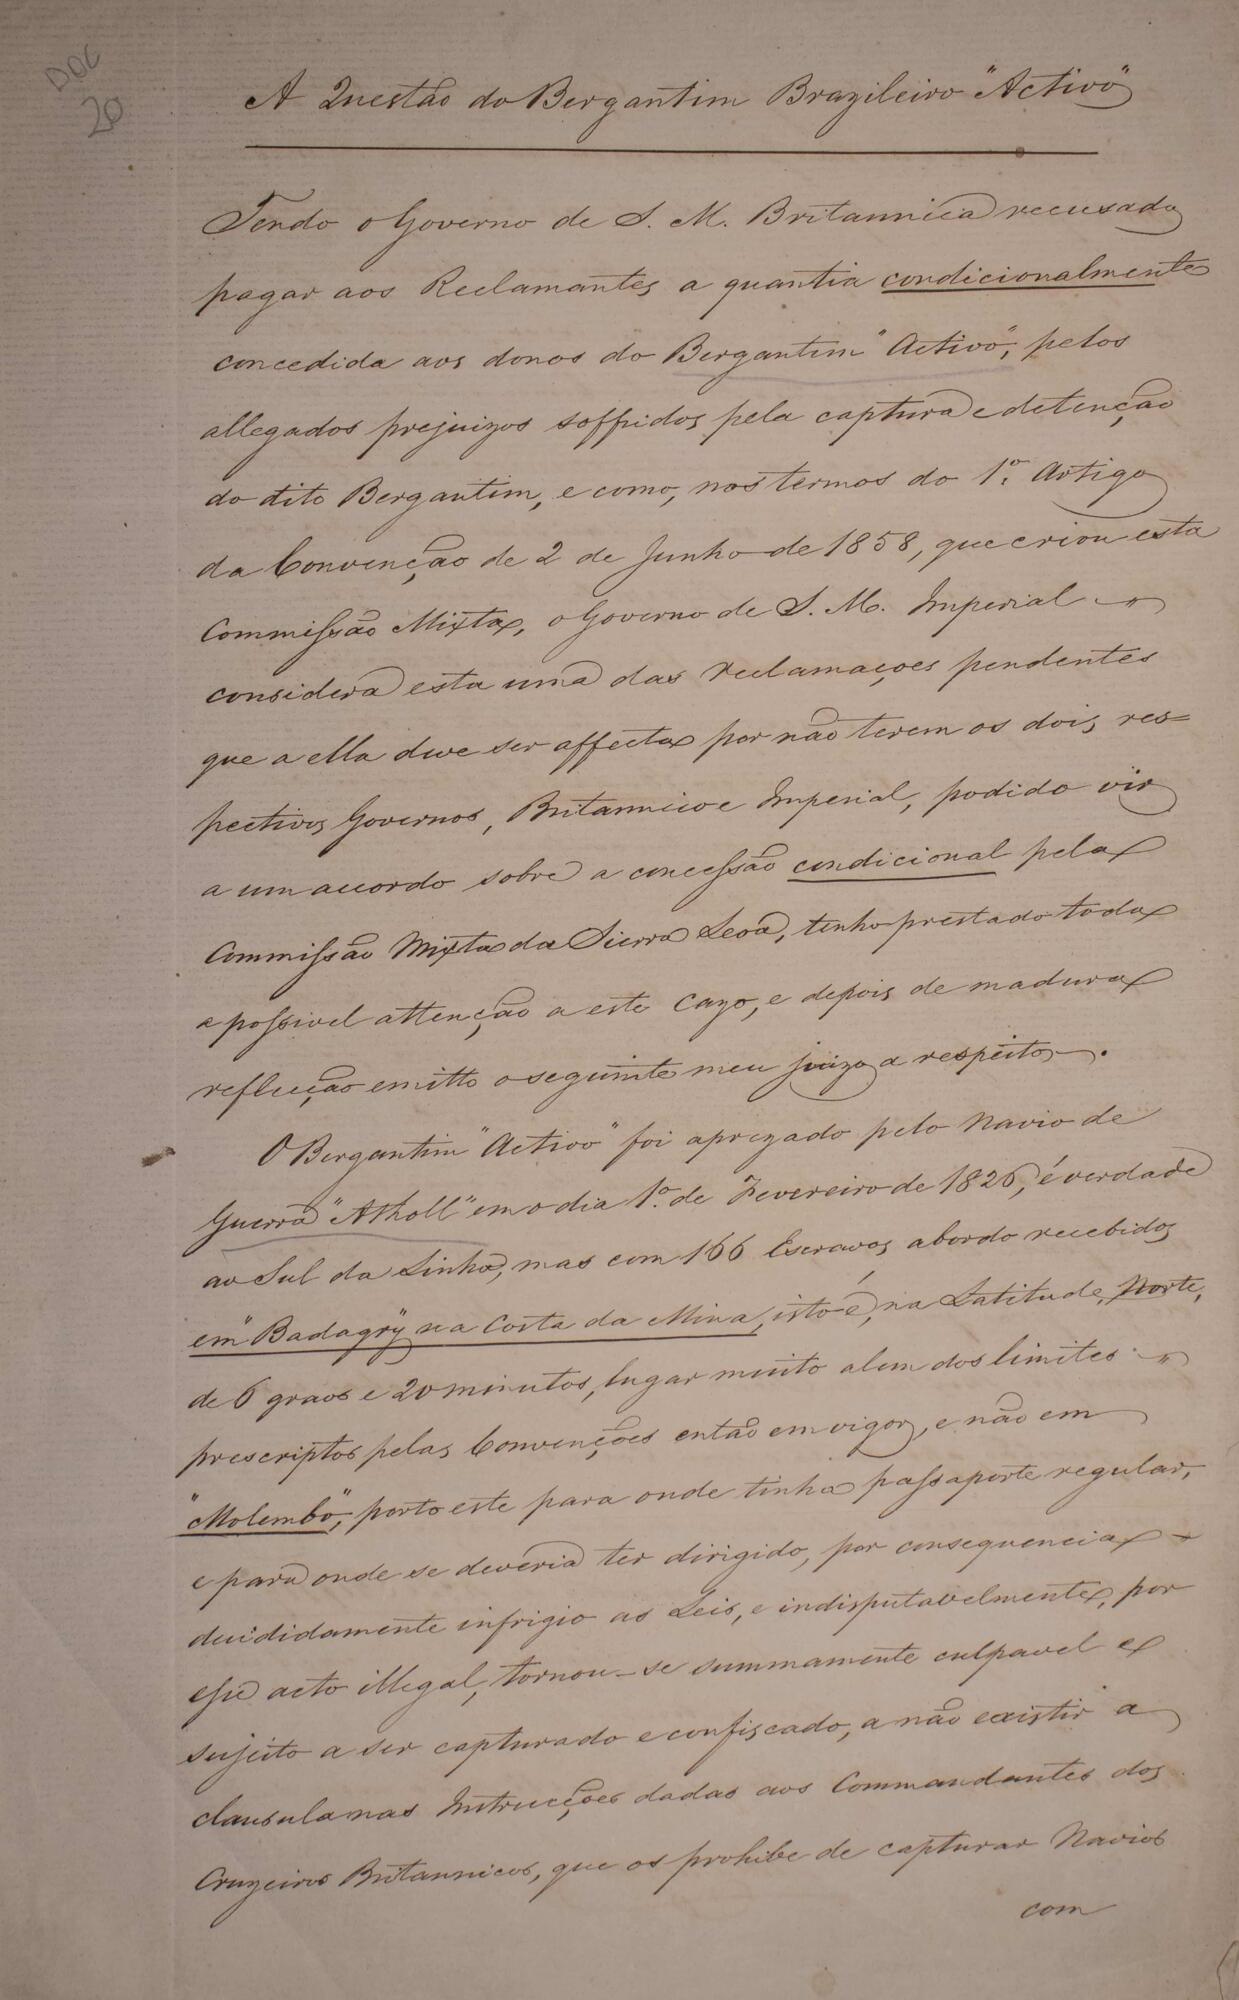 DOC
20
A Questão do Bergantim Brazileiro "Activo"
Tendo o Governo de S. M. Britannica recusado
pagar aos Reclamantes a quantia condicionalmente
concedida aos donos do Bergantim "Activo", pelos
allegados prejuizos soffridos pela captura e detenção
do dito Bergantim, e como, nos termos do 1º Artigo
da Convenção de 2 de Junho de 1858, que criou esta
Commissão Mixta, o Governo de S. M. Imperial
considera esta uma das reclamações pendentes
que a ella deve ser affecta por não terem os dois res=
pectivos Governos, Britannico e Imperial, podido vir
a um accordo sobre a concessão condicional pela
Commissão Mixta da Sierra Leoa, tenho prestado toda
a possivel attenção a este cazo, e depois de madura
reflecção emitto o seguinte meu juizo a respeito.
O Bergantim "Activo" foi aprezado pelo Navio de
Guerra "Atholl" em o dia 1º de Fevereiro de 1826, é verdade
ao Sul da Linha, mas com 166 Escravos abordo recebidos
em "Badagry" na Costa da Mina, isto é, na Latitude, Norte,
de 6 graos e 20 minutos, lugar muito alem dos limites
prescriptos pelas Convenções então em vigor, e não em
"Molembo", porto este para onde tinha passaporte regular,
e para onde se deveria ter dirigido, por consequencia
decididamente infrigio as Leis, e indisputavelmente, por
esse acto illegal, tornou-se summamente culpavel e
sujeito a ser capturado e confiscado, a não existir a
clausula nas Instrucções dadas aos Commandantes dos
Cruzeiros Britannicos, que os prohibe de capturar Navios
com